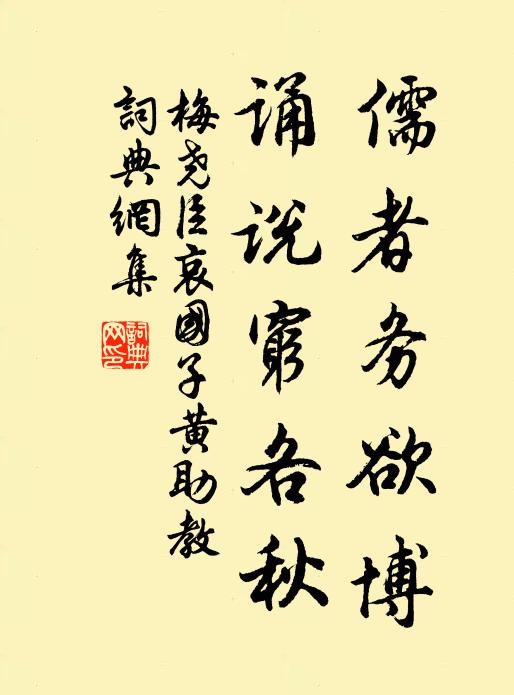 儒者务欲博
诵说穷各秋
梅尧臣哀國子黄助教
詞典網集
詞典网印